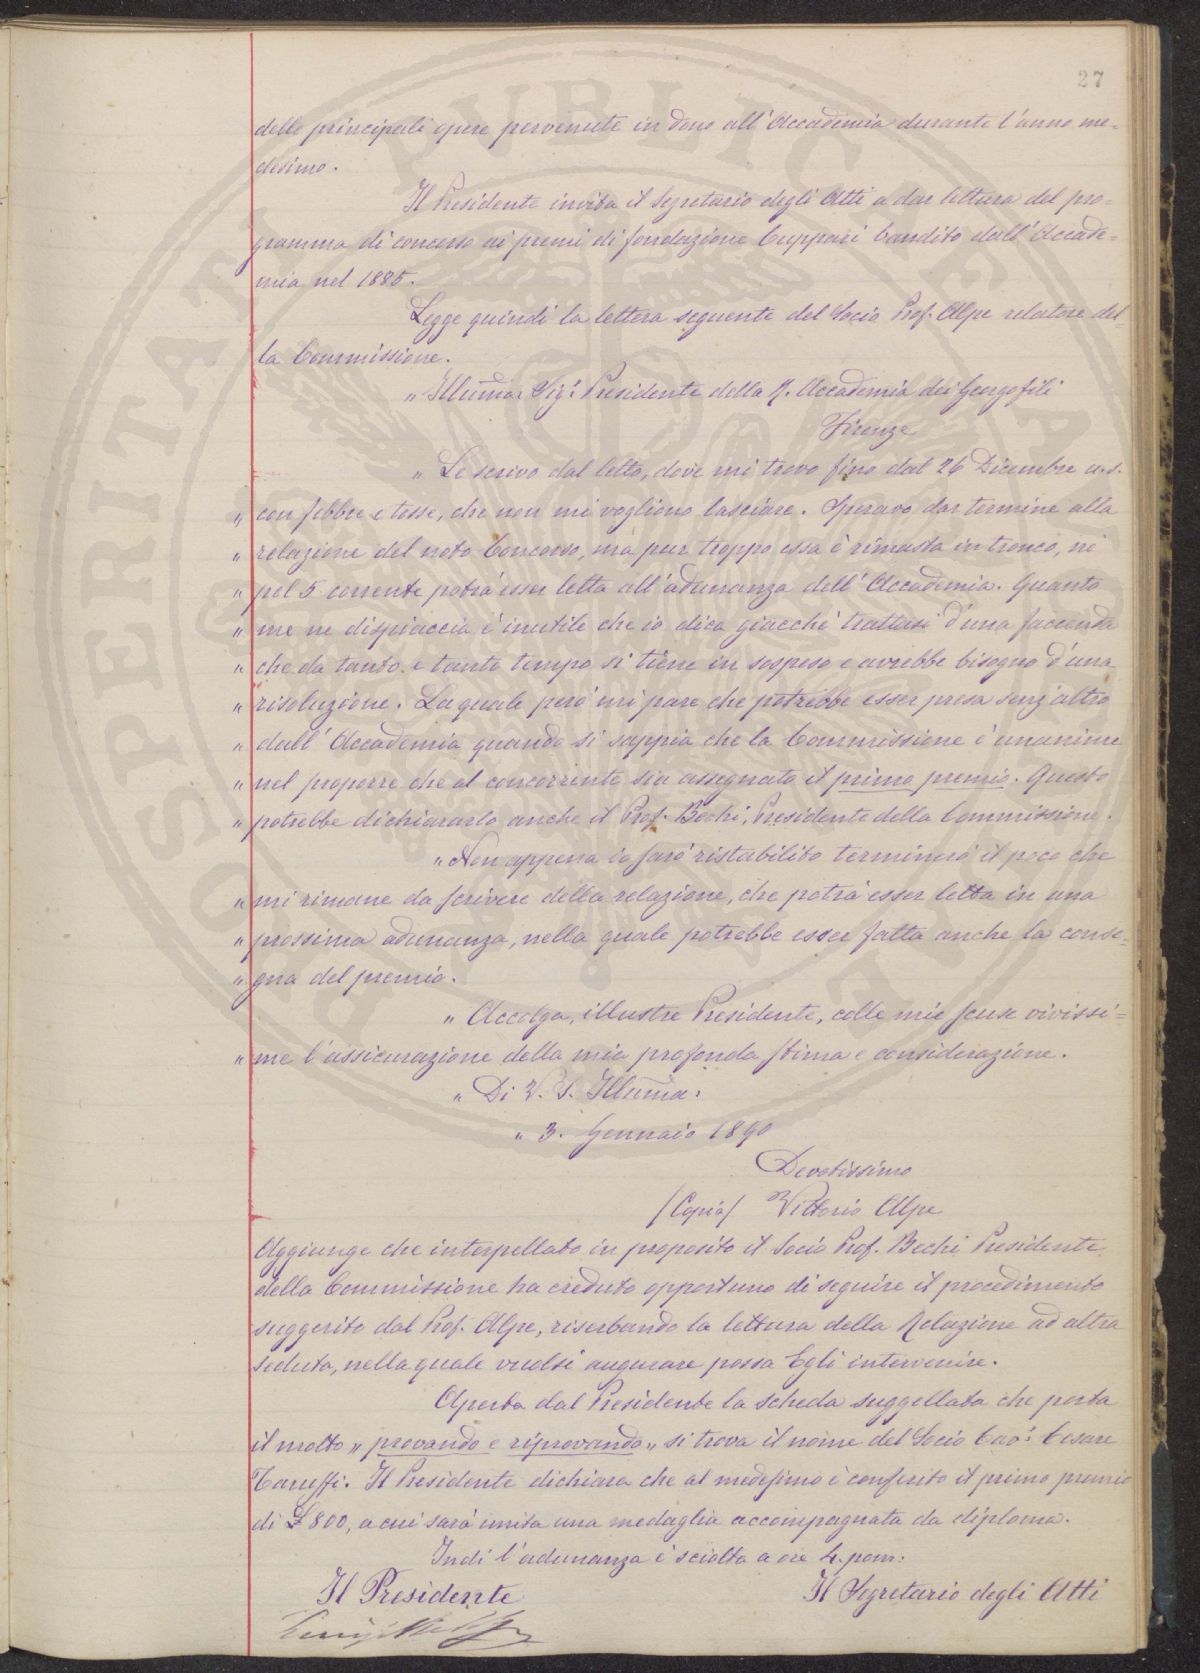 27
delle principali opere pervenute in dono all'Accademia durante l'anno me=
desimo.
Il Presidente invita il Segretario degli Atti a dar lettura del pro=
gramma di concorso ai premi di fondazione Cuppari bandito dall'Accade=
mia nel 1885.
Legge quindi la lettera seguente del Socio Prof. Alpe relatore del=
la Commissione.
" Illumo: Sigr: Presidente della R. Accademia dei Georgofili
Firenze
" Le scrivo dal letto, dove mi trovo fino dal 26 Dicembre u.s.
" con febbre e tosse, che non mi vogliono lasciare. Speravo dar termine alla
" relazione del noto Concorso, ma pur troppo essa è rimasta in tronco, nè
" pel 5 corrente potrà esser letta all'adunanza dell'Accademia. Quanto
" me ne dispiaccia è inutile che io dica giacchè trattasi d'una faccenda
" che da tanto e tanto tempo si tiene in sospeso e avrebbe bisogno d'una
" risoluzione. La quale però mi pare che potrebbe esser presa senz'altro
" dall'Accademia quando si sappia che la Commissione è unanime
" nel proporre che al concorrente sia assegnato il primo premio. Questo
" potrebbe dichiararlo anche il Prof. Bechi, Presidente della Commissione.
" Non appena io sarò ristabilito terminerò il poco che
" mi rimane da scrivere della relazione, che potrà esser letta in una
" prossima adunanza, nella quale potrebbe esser fatta anche la conse=
" gna del premio.
" Accolga, illustre Presidente, colle mie scuse vivissi=
" me l'assicurazione della mia profonda stima e considerazione.
" Di V. S. Illuma:
" 3. Gennaio 1890
Devotissimo
/Copia/ Vittorio Alpe
Aggiunge che interpellato in proposito il Socio Prof. Bechi Presidente
della Commissione ha creduto opportuno di seguire il procedimento
suggerito dal Prof. Alpe, riserbando la lettura della Relazione ad altra
seduta, nella quale vuolsi augurare possa Egli intervenire.
Aperta dal Presidente la scheda suggellata che porta
il motto " provando e riprovando " si trova il nome del Socio Cav: Cesare
Taruffi. Il Presidente dichiara che al medesimo è conferito il primo premio
di £ 800, a cui sarà unita una medaglia accompagnata da diploma.
Indi l'adunanza è sciolta a ore 4. pom:
Il Presidente Il Segretario degli Atti
PVBLICAE PROSPERITATI